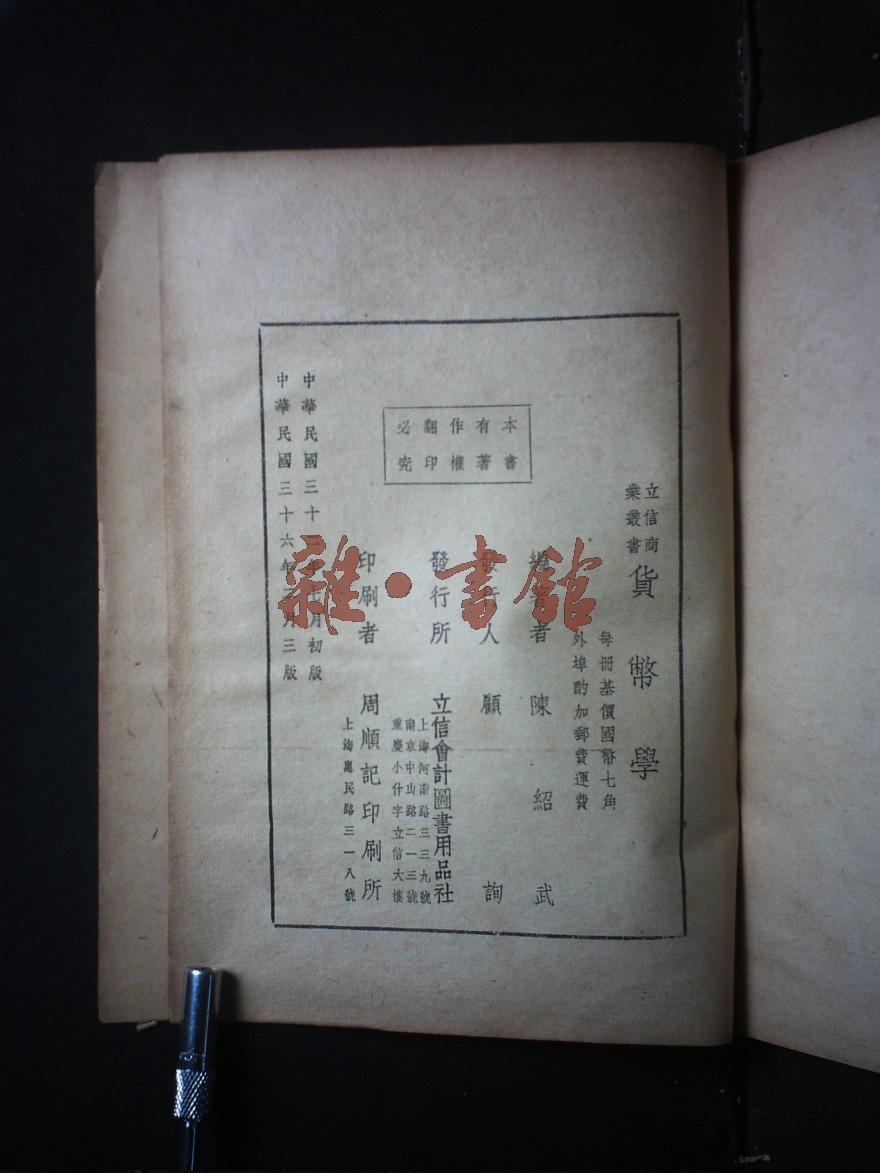 立信商
業叢書
貨幣學
每冊基價國幣七角
外埠酌加郵費運費
本書
有著
作權
翻印
必究
編著者 陳紹武
發行人 顧詢
發行所 立信會計圖書用品社
上海河南路三三九號
南京中山路二一三號
重慶小什字立信大樓
印刷者 周順記印刷所
上海惠民路三一八號
中華民國三十 年七月初版
中華民國三十六年 月三版
雜·書館